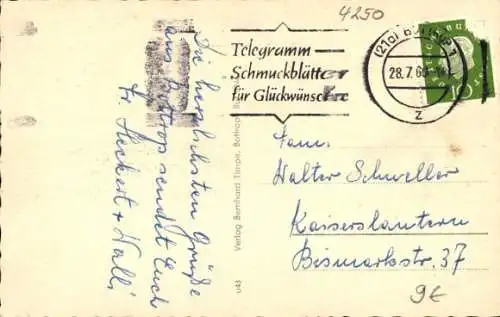 4250
Telegramm-
Schmuckblätter
für Glückwünsche
(21a) BOTTROP 1
28.7.60
z
10
Die herzlichsten Grüße
aus Bottrop sendet Euch
Fr. Heckert + Walli
Verlag Bernhard Timpe, Bottrop
U43
Fam.
Walter Schweller
Kaiserslautern
Bismarkstr. 37
9€